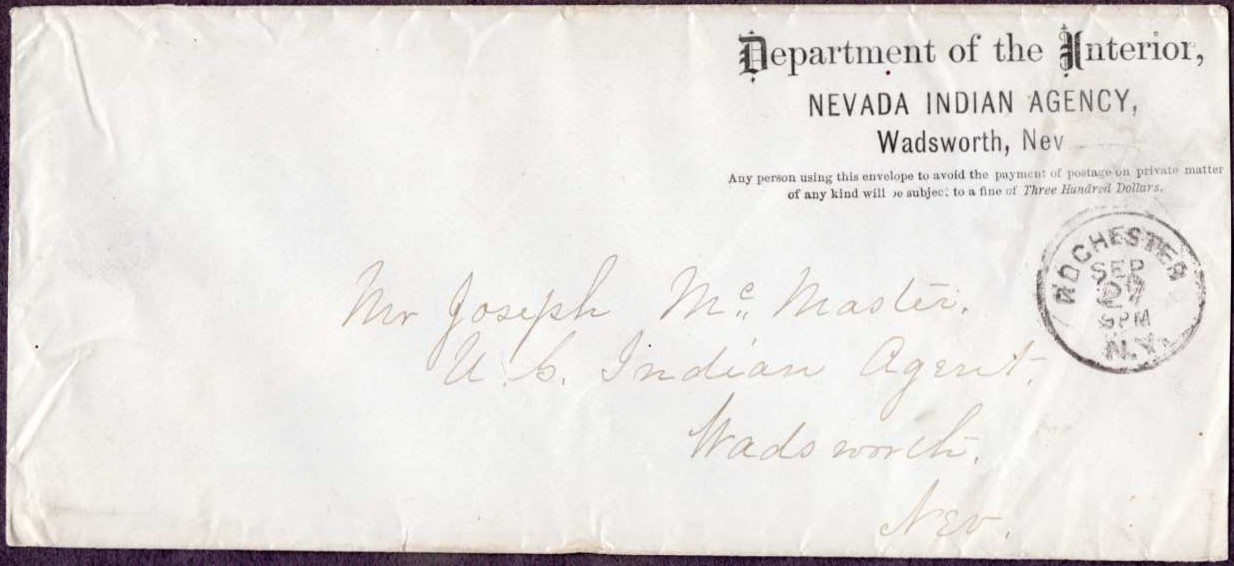 Department of the Interior,
NEVADA INDIAN AGENCY,
Wadsworth, Nev
Any person using this envelope to avoid the payment of postage on private matter
of any kind will be subject to a fine of Three Hundred Dollars.
ROCHESTER
SEP
27
PM
N.Y.
Mr Joseph Mc. Master.
U. S. Indian Agent.
Wadsworth.
Nev.